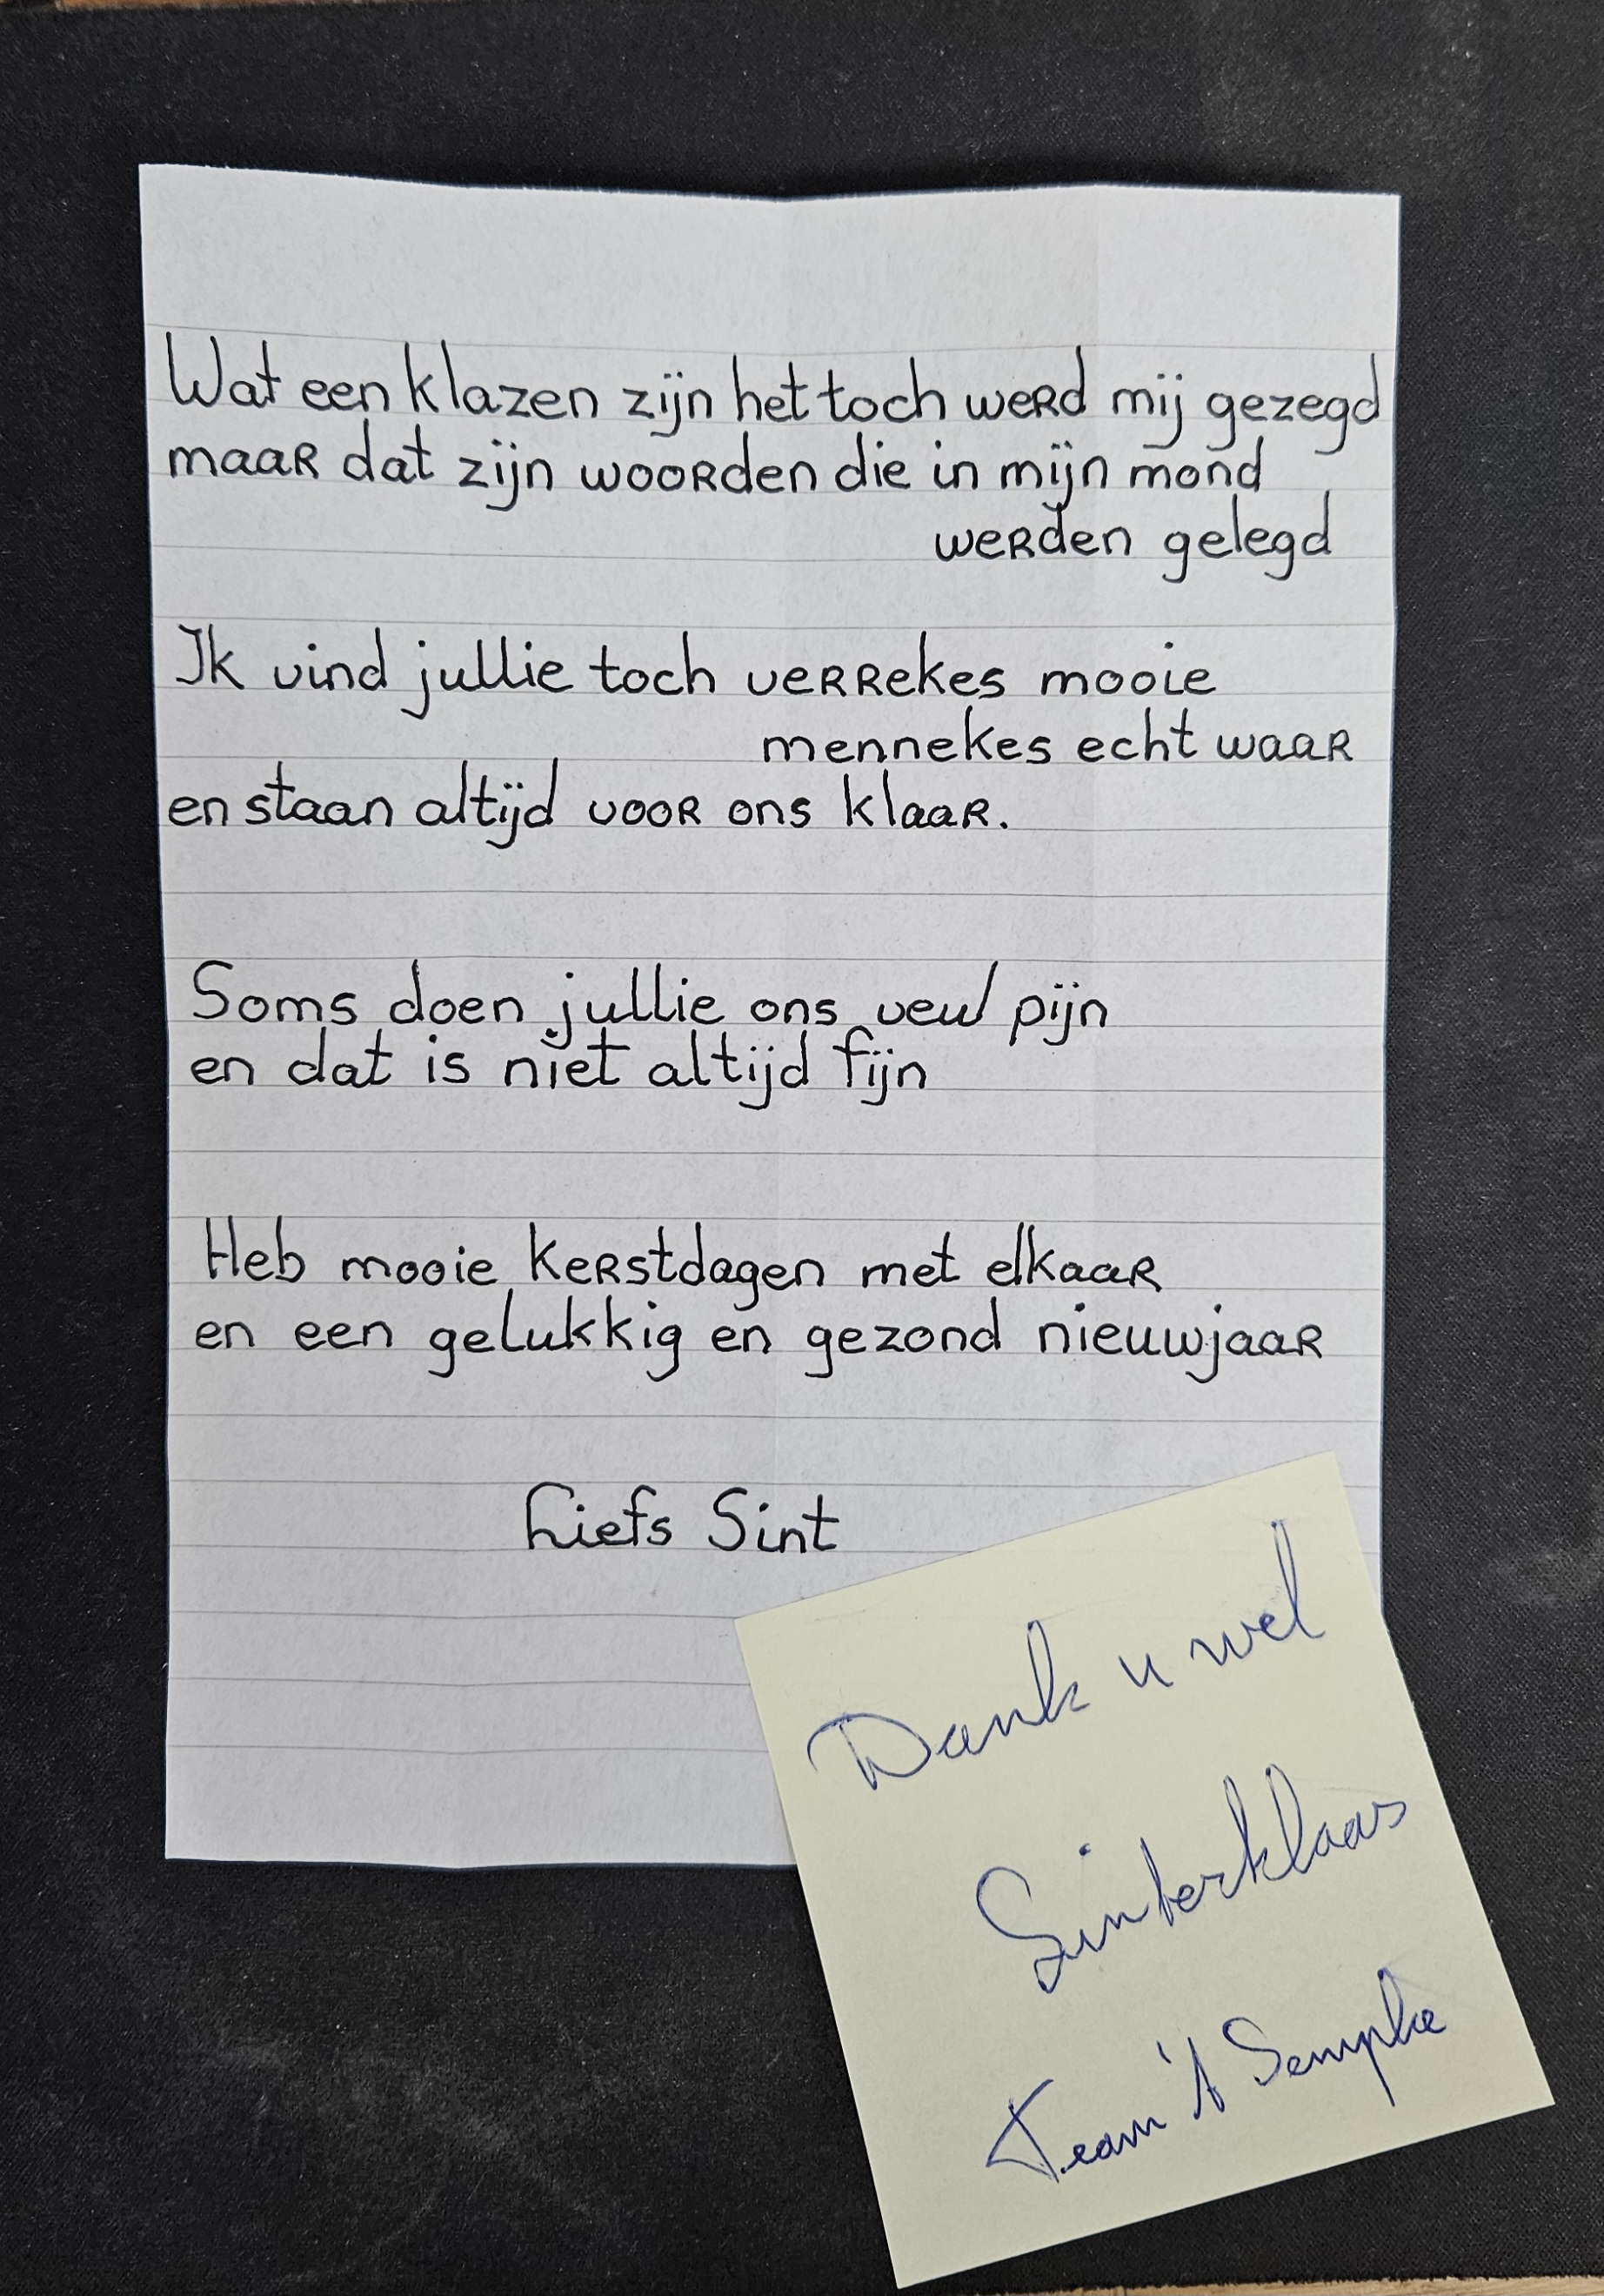 Wat een klazen zijn het toch werd mij gezegd
maar dat zijn woorden die in mijn mond
werden gelegd
Ik vind jullie toch verrekes mooie
mennekes echt waar
en staan altijd voor ons klaar.
Soms doen jullie ons veul pijn
en dat is niet altijd fijn
Heb mooie kerstdagen met elkaar
en een gelukkig en gezond nieuwjaar
Liefs Sint
Dank u wel
Sinterklaas
Team 't Sempke